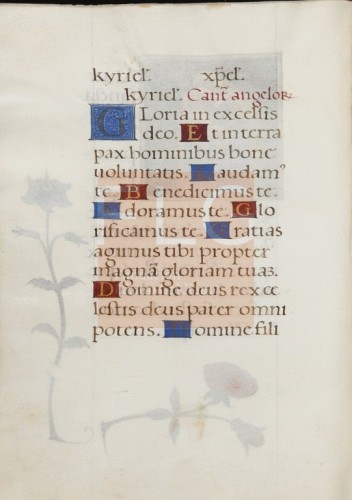 kyriel̃. xp̃el̃.
kyriel̃. Cant̃ angelor
GLoria in excelsis
deo. Et in terra
pax hominibus bone
uoluntatis. Laudam⁹
te. Benedicimus te.
Adoramus te. Glo
rificamus te. Gratias
agimus tibi propter
magnã gloriam tuaʒ.
Domine deus rex ce
lestis deus pater omni
potens. Domine fili